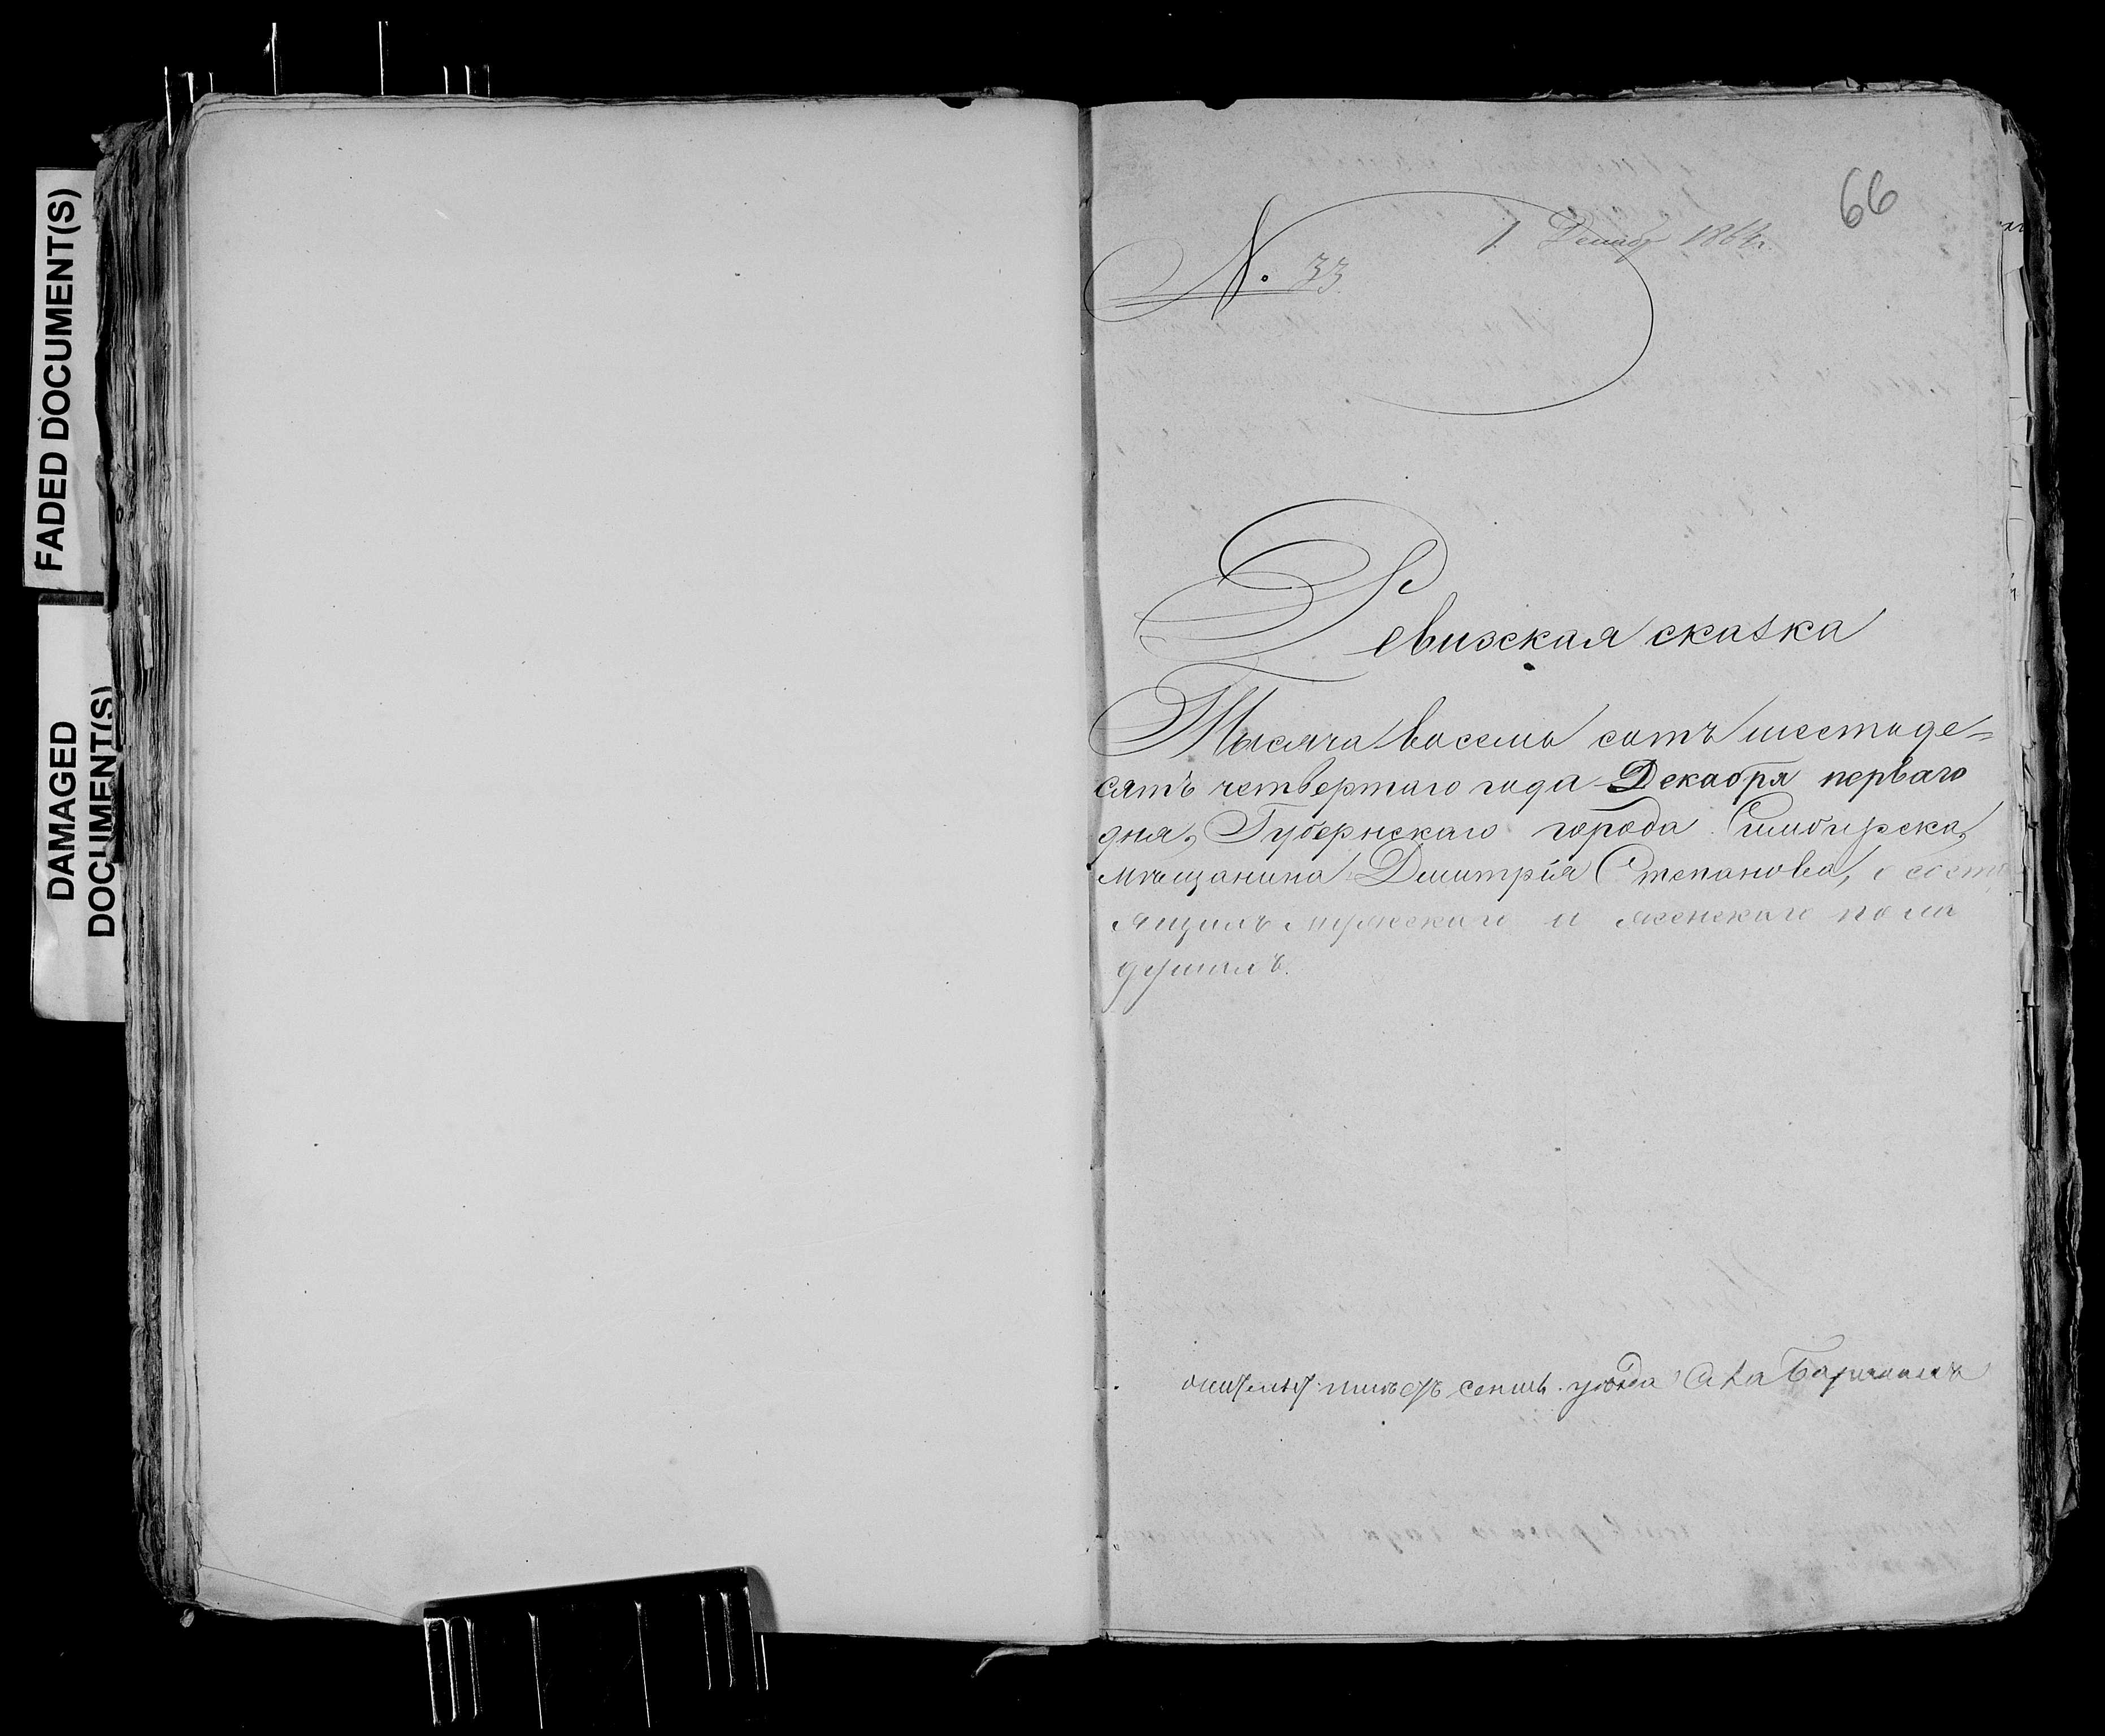 FADED DOCUMENT(S)
DAMAGED
DOCUMENT(S)
66
1 Декабр 1864 г.
N. 33
Ревизская сказка
Тысяча восемь сотъ шестиде=
сятъ четвертаго года Декабря перваго
дня, Губернскаго города Симбирска,
мѣщанина Дмитрія Степанова, о состо
ящихъ мужескаго и женскаго пола
душахъ.
уѣзда